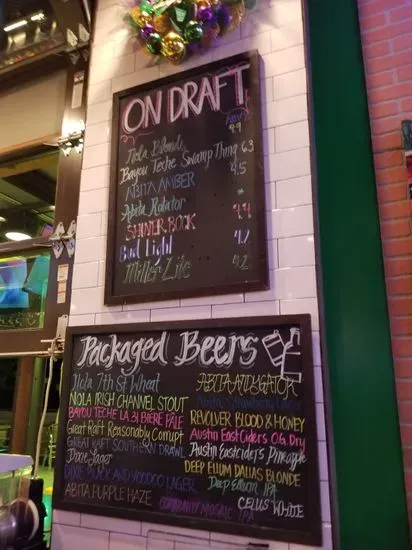 ON DRAFT
ABV
Nola Blonde 4.9
Bayou Teche Swamp Thing 6.3
ABITA AMBER 4.5
Abita Rotator *
SHINER BOCK 4.4
Bud Light 4.2
Miller Lite 4.2
Packaged Beers
Nola 7th St Wheat
NOLA IRISH CHANNEL STOUT
BAYOU TECHE LA 31 BIÈRE PÂLE
Great Raft Reasonably Corrupt
GREAT RAFT SOUTHERN DRAWL
Dixie Lager
DIXIE BLACK AND VOODOO LAGER
ABITA PURPLE HAZE
ABITA ANDYGATOR
Abita Strawberry
REVOLVER BLOOD & HONEY
Austin EastCiders Og. Dry
Austin Eastciders Pineapple
DEEP ELLUM DALLAS BLONDE
Deep Ellum IPA
CELIS WHITE
COMMUNITY MOSAIC IPA